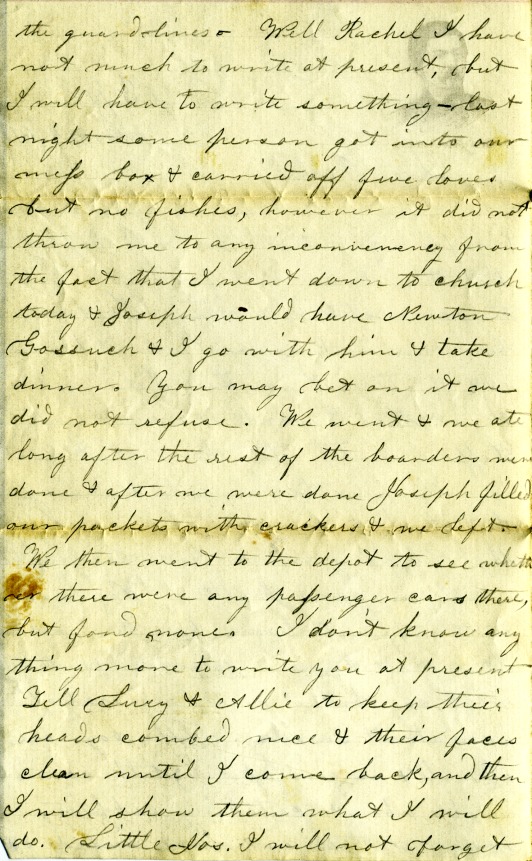 the guard-lines. Well Rachel I have
not much to write at present, but
I will have to write something - last
night some person got into our
mess box & carried off five loves
but no fishes, however it did not
throw me to any inconveniency from
the fact that I went down to church
today & Joseph would have Newton
Gossuch & I go with him & take
dinner. You may bet on it we
did not refuse. We went & we ate
long after the rest of the boarders were
done & after we were done Joseph filled
our pockets with crackers & we left.
We then went to the depot to see wheth
er there were any passenger cars there,
but fond none. I don't know any
thing more to write you at present
Tell Lucy & Allie to keep their
heads combed nice & their faces
clean until I come back, and then
I will show them what I will
do. Little Jos. I will not forget